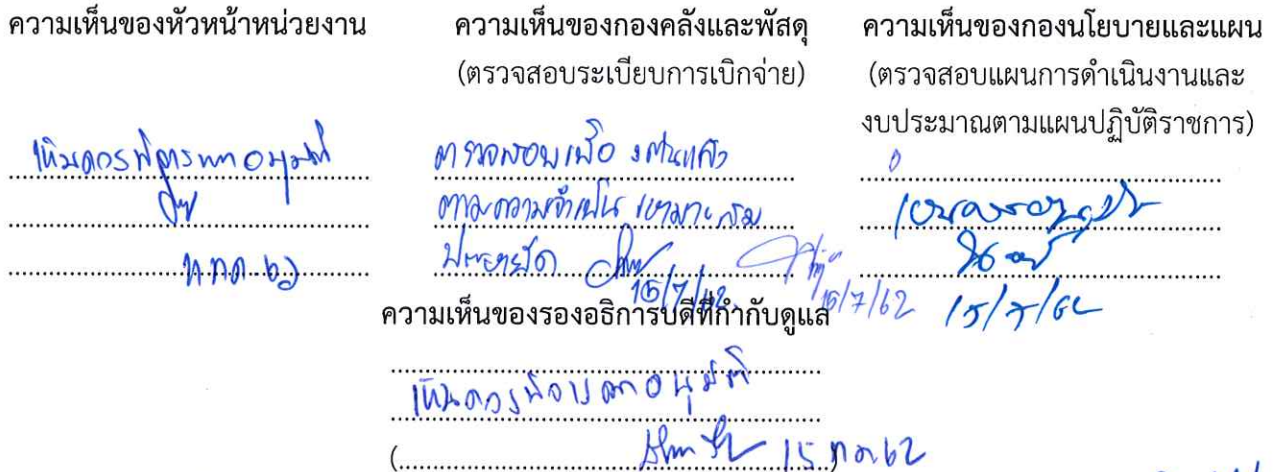 ความเห็นของหัวหน้าหน่วยงาน
เห็นควรพิจารณาอนุมัติ
ก.ค. ๖๖
ความเห็นของกองคลังและพัสดุ
(ตรวจสอบระเบียบการเบิกจ่าย)
ตรวจสอบเบื้องต้นแล้ว
ตามความจำเป็น เหมาะสม
ประหยัด
15/7/62
16/7/62
ความเห็นของกองนโยบายและแผน
(ตรวจสอบแผนการดำเนินงานและ
งบประมาณตามแผนปฏิบัติราชการ)
เห็นควรอนุมัติ
15/7/62
ความเห็นของรองอธิการบดีที่กำกับดูแล
เห็นควรพิจารณาอนุมัติ
15 ก.ค. 62